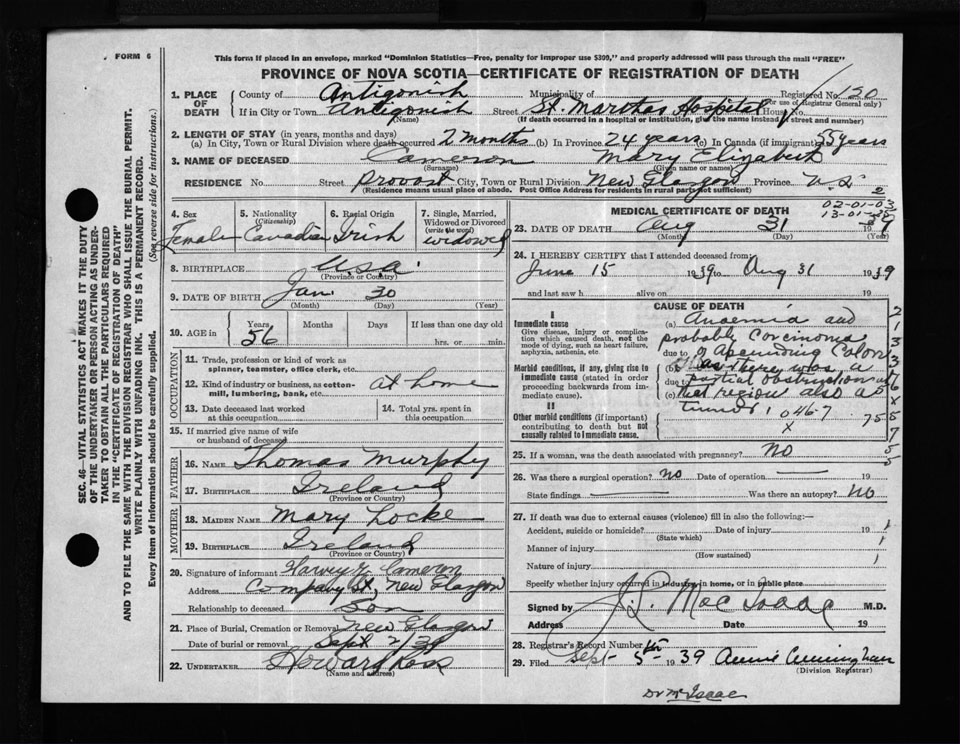 FORM 6
This form if placed in an envelope, marked "Dominion Statistics—Free, penalty for improper use $300," and properly addressed will pass through the mail "FREE"
PROVINCE OF NOVA SCOTIA—CERTIFICATE OF REGISTRATION OF DEATH
1. PLACE OF DEATH County of Antigonish Municipality of Registered No. 120
(For use of Registrar General only)
If in City or Town Antigonish Street St. Marthas Hospital House
(Name) (If death occurred in a hospital or institution, give the name instead of street and number)
2. LENGTH OF STAY (in years, months and days)
(a) In City, Town or Rural Division where death occurred 2 months (b) In Province 24 years (c) In Canada (if immigrant) 55 years
3. NAME OF DECEASED Cameron Mary Elizabeth
(Surname) (Given name or names)
RESIDENCE No. Street Provost City, Town or Rural Division New Glasgow Province N.S. 2
(Residence means usual place of abode. Post Office Address for residents in rural parts not sufficient)
4. Sex Female
5. Nationality (Citizenship) Canadian
6. Racial Origin Irish
7. Single, Married, Widowed or Divorced (write the word) widowed
8. BIRTHPLACE U.S.A.
(Province or Country)
9. DATE OF BIRTH Jan 30
(Month) (Day) (Year)
10. AGE in Years Months Days If less than one day old
56 hrs. or min.
OCCUPATION
11. Trade, profession or kind of work as spinner, teamster, office clerk, etc.
12. Kind of industry or business, as cotton-mill, lumbering, bank, etc. at home
13. Date deceased last worked at this occupation
14. Total yrs. spent in this occupation
15. If married give name of wife or husband of deceased
FATHER
16. NAME Thomas Murphy
17. BIRTHPLACE Ireland
(Province or Country)
MOTHER
18. MAIDEN NAME Mary Locke
19. BIRTHPLACE Ireland
(Province or Country)
20. Signature of informant Harvey Cameron
Address Company St, New Glasgow
Relationship to deceased Son
21. Place of Burial, Cremation or Removal New Glasgow
Date of burial or removal Sept 2/39
22. UNDERTAKER Howard Ross
(Name and address)
MEDICAL CERTIFICATE OF DEATH
23. DATE OF DEATH Aug 31
(Month) (Day) (Year)
24. I HEREBY CERTIFY that I attended deceased from
June 15 1939 to Aug 31 1939
and last saw h alive on 19
CAUSE OF DEATH
I
Immediate cause
Give disease, injury or complication which caused death, not the mode of dying, such as heart failure, asphyxia, asthenia, etc.
Morbid conditions, if any, giving rise to immediate cause (stated in order proceeding backwards from immediate cause).
II
Other morbid conditions (if important) contributing to death but not causally related to immediate cause.
(a) Anaemia and
probable Carcinoma
due to
(b) as there was a
due to partial obstruction
(c) that region also a
tumor 1 0467
x 75
25. If a woman, was the death associated with pregnancy? No
26. Was there a surgical operation? No Date of operation
State findings Was there an autopsy? No
27. If death was due to external causes (violence) fill in also the following:—
Accident, suicide or homicide? Date of injury 19
(State which)
Manner of injury
(How sustained)
Nature of injury
Specify whether injury occurred in industry, in home, or in public place
Signed by J.L. MacIsaac M.D.
Address Date 19
28. Registrar's Record Number
29. Filed Sept 5th 1939 Annie Cunningham
(Division Registrar)
Dr McIsaac
SEC. 46—VITAL STATISTICS ACT MAKES IT THE DUTY
OF THE UNDERTAKER OR PERSON ACTING AS UNDER-
TAKER TO OBTAIN ALL THE PARTICULARS REQUIRED
IN THE "CERTIFICATE OF REGISTRATION OF DEATH"
AND TO FILE THE SAME WITH THE DIVISION REGISTRAR WHO SHALL ISSUE THE BURIAL PERMIT.
WRITE PLAINLY WITH UNFADING INK. THIS IS A PERMANENT RECORD.
Every item of information should be carefully supplied. (See reverse side for instructions.)